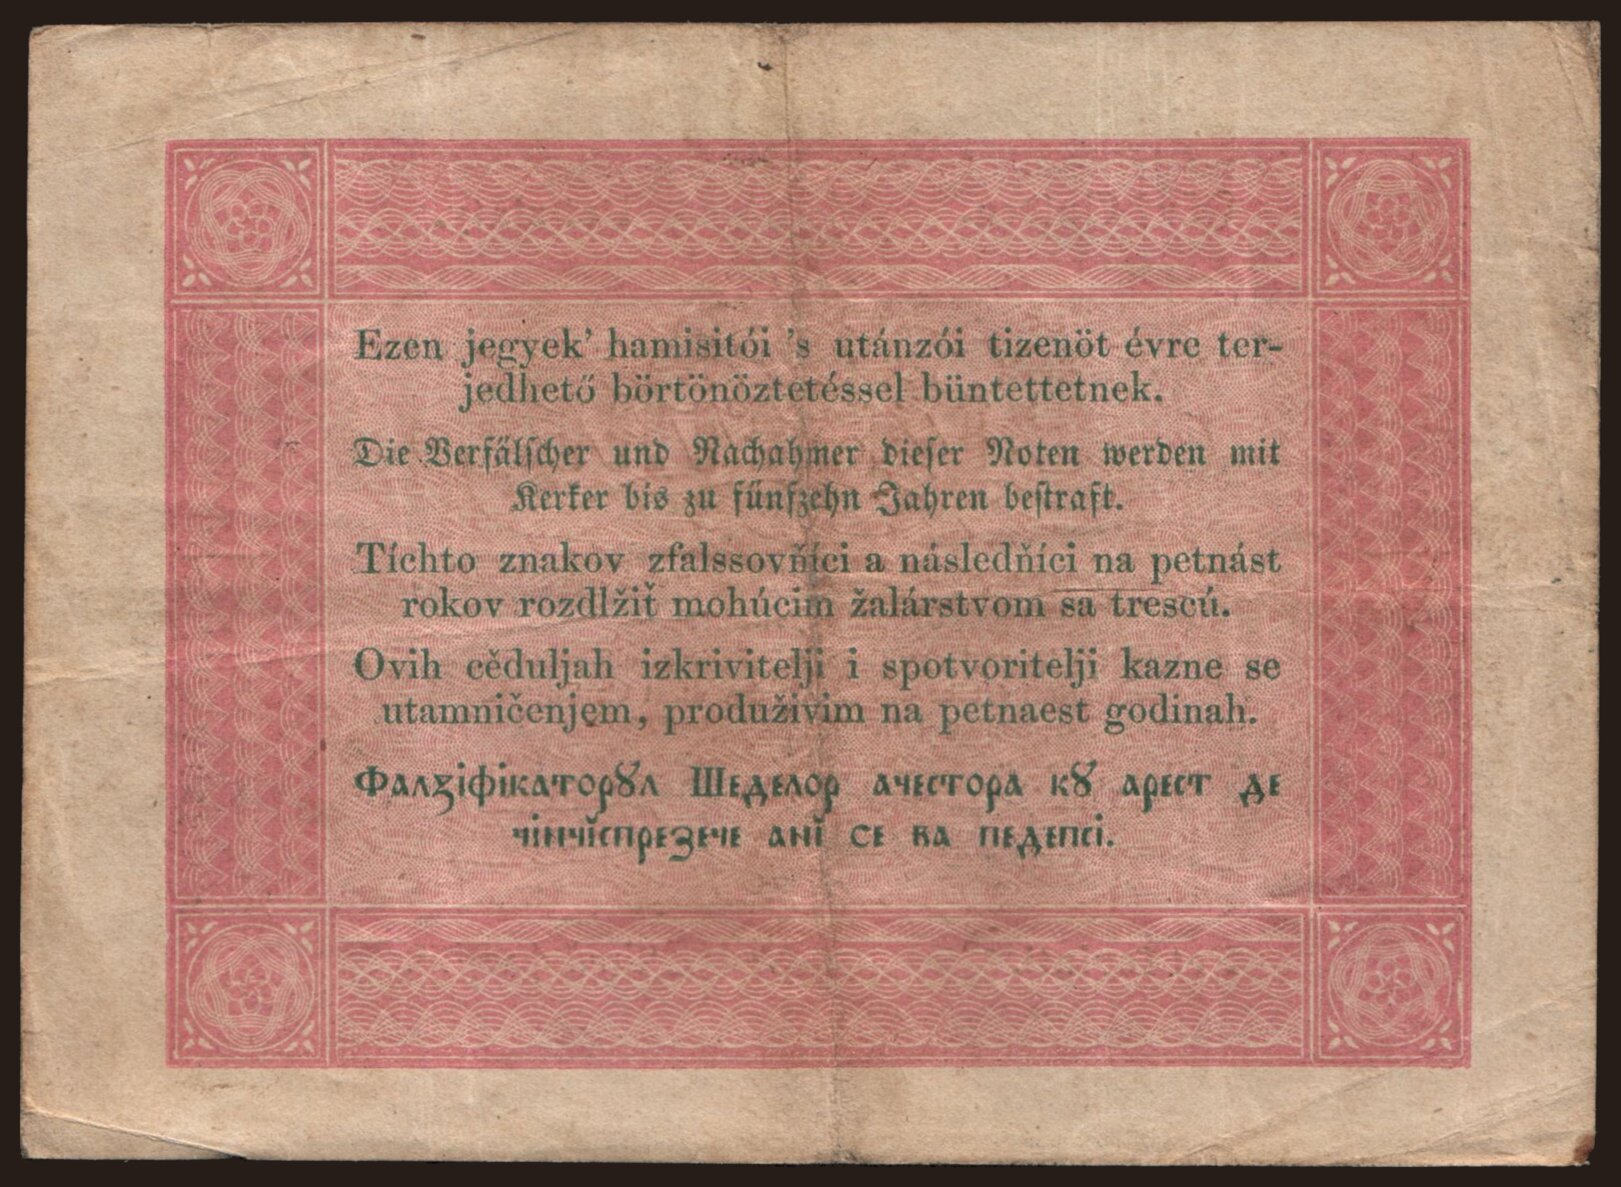 Ezen jegyek’ hamisitói ’s utánzói tizenöt évre ter-
jedhető börtönöztetéssel büntettetnek.
Die Verfälscher und Nachahmer dieser Noten werden mit
Kerker bis zu fünfzehn Jahren bestraft.
Tíchto znakov zfalssovňíci a následňíci na petnást
rokov rozdlžiť mohúcim žalárstvom sa trescú.
Ovih cěduljah izkrivitelji i spotvoritelji kazne se
utamničenjem, produživim na petnaest godinah.
Фалꙃіфікаторꙋл Шеделор ачестора кꙋ арест де
чінчĭспрезече анĭ се ва педепсі.